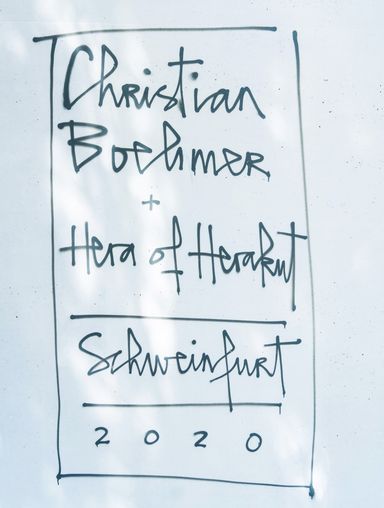 Christian
Boehmer
+
Hera of Herakut
Schweinfurt
2020